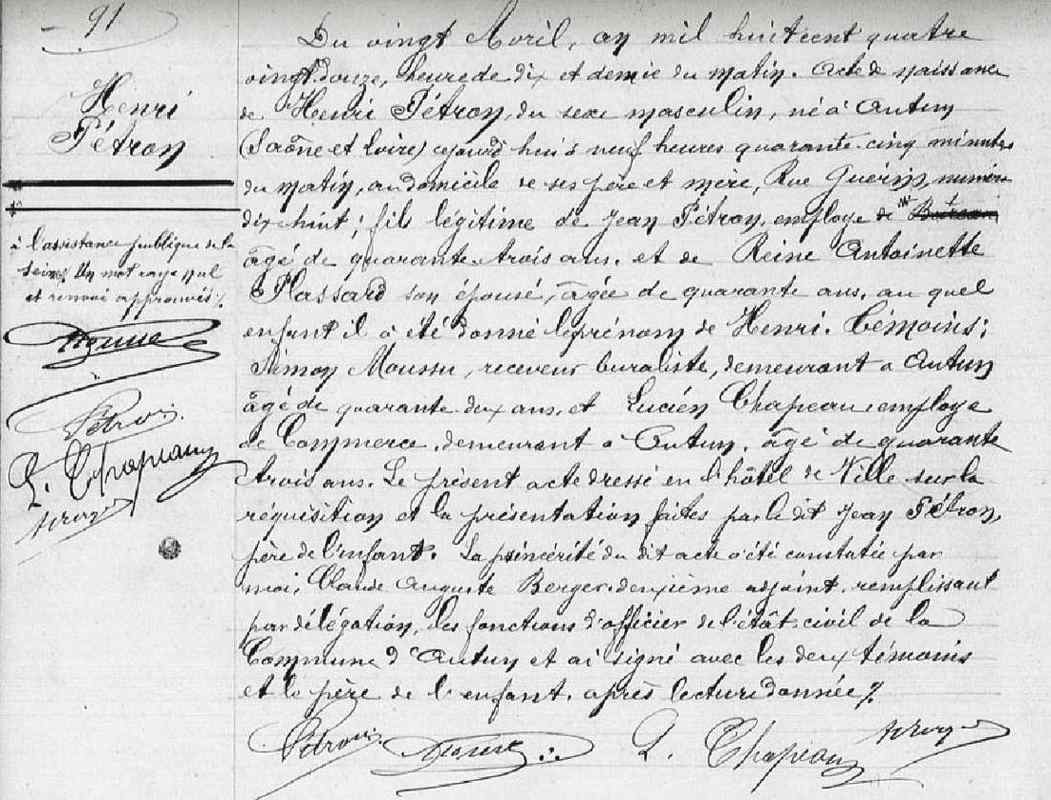 91
Henri
Pétron
à l'assistance publique de la
Seine. Un mot rayé nul
et renvoi approuvés.
Pétron
L. Chapeau
Du vingt Avril, an mil huit cent quatre
vingt douze, heure de dix et demie du matin. Acte de naissance
de Henri Pétron, du sexe masculin, né à Autun
(Saône et Loire) cejourd'hui à neuf heures quarante-cinq minutes
du matin, au domicile de ses père et mère, Rue Guérin, numéro
dix huit; fils légitime de Jean Pétron, employé de Bureau
âgé de quarante trois ans, et de Reine Antoinette
Plassard son épouse, âgée de quarante ans, au quel
enfant il a été donné le prénom de Henri. Témoins:
Simon Moussu, receveur buraliste, demeurant à Autun
âgé de quarante deux ans, et Lucien Chapeau employé
de Commerce, demeurant à Autun, âgé de quarante
trois ans. Le présent acte dressé en l'hôtel de Ville sur la
réquisition et la présentation faites par le dit Jean Pétron,
père de l'enfant. La sincérité du dit acte a été constatée par
moi, Claude Auguste Berger deuxième adjoint, remplissant
par délégation, les fonctions d'officier de l'état civil de la
Commune d'Autun et ai signé avec les deux témoins
et le père de l'enfant, après lecture donnée.
Pétron L. Chapeau